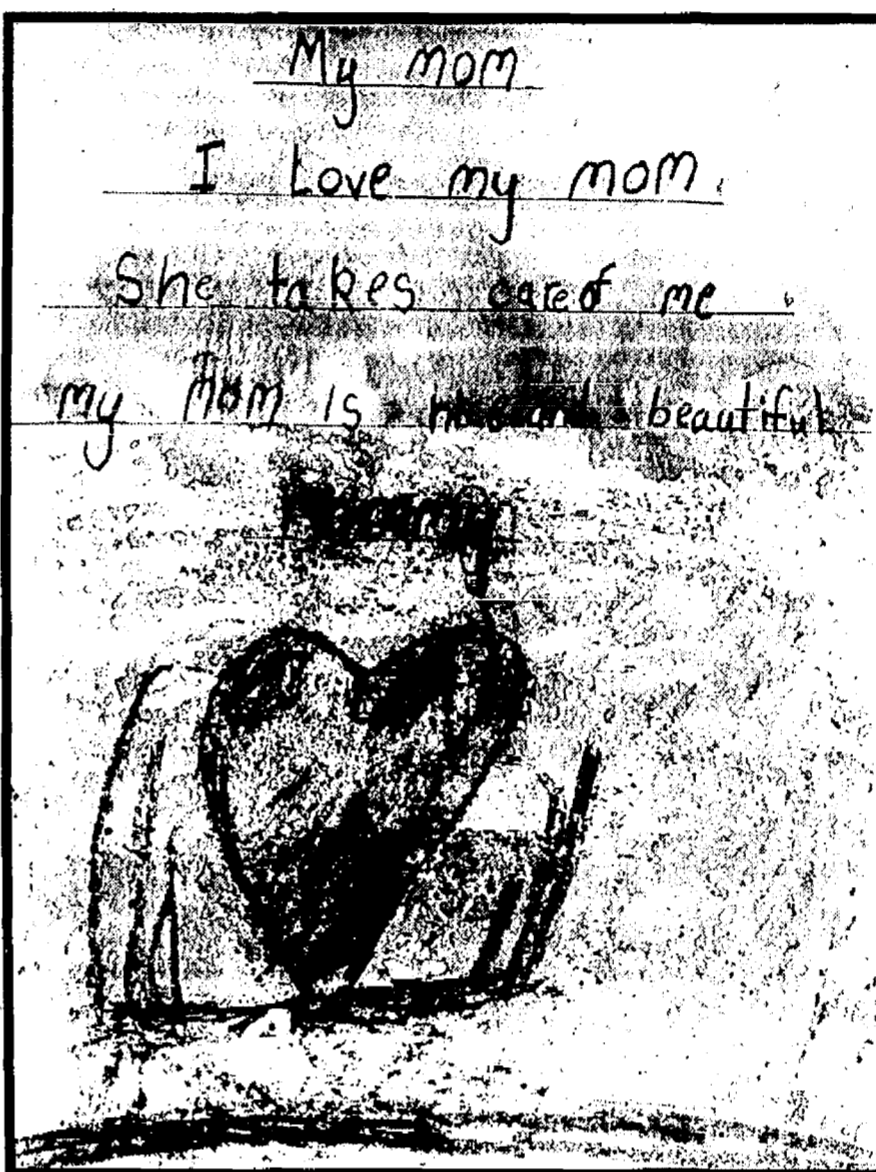 My mom
I Love my mom.
She takes care of me.
my mom is beautiful